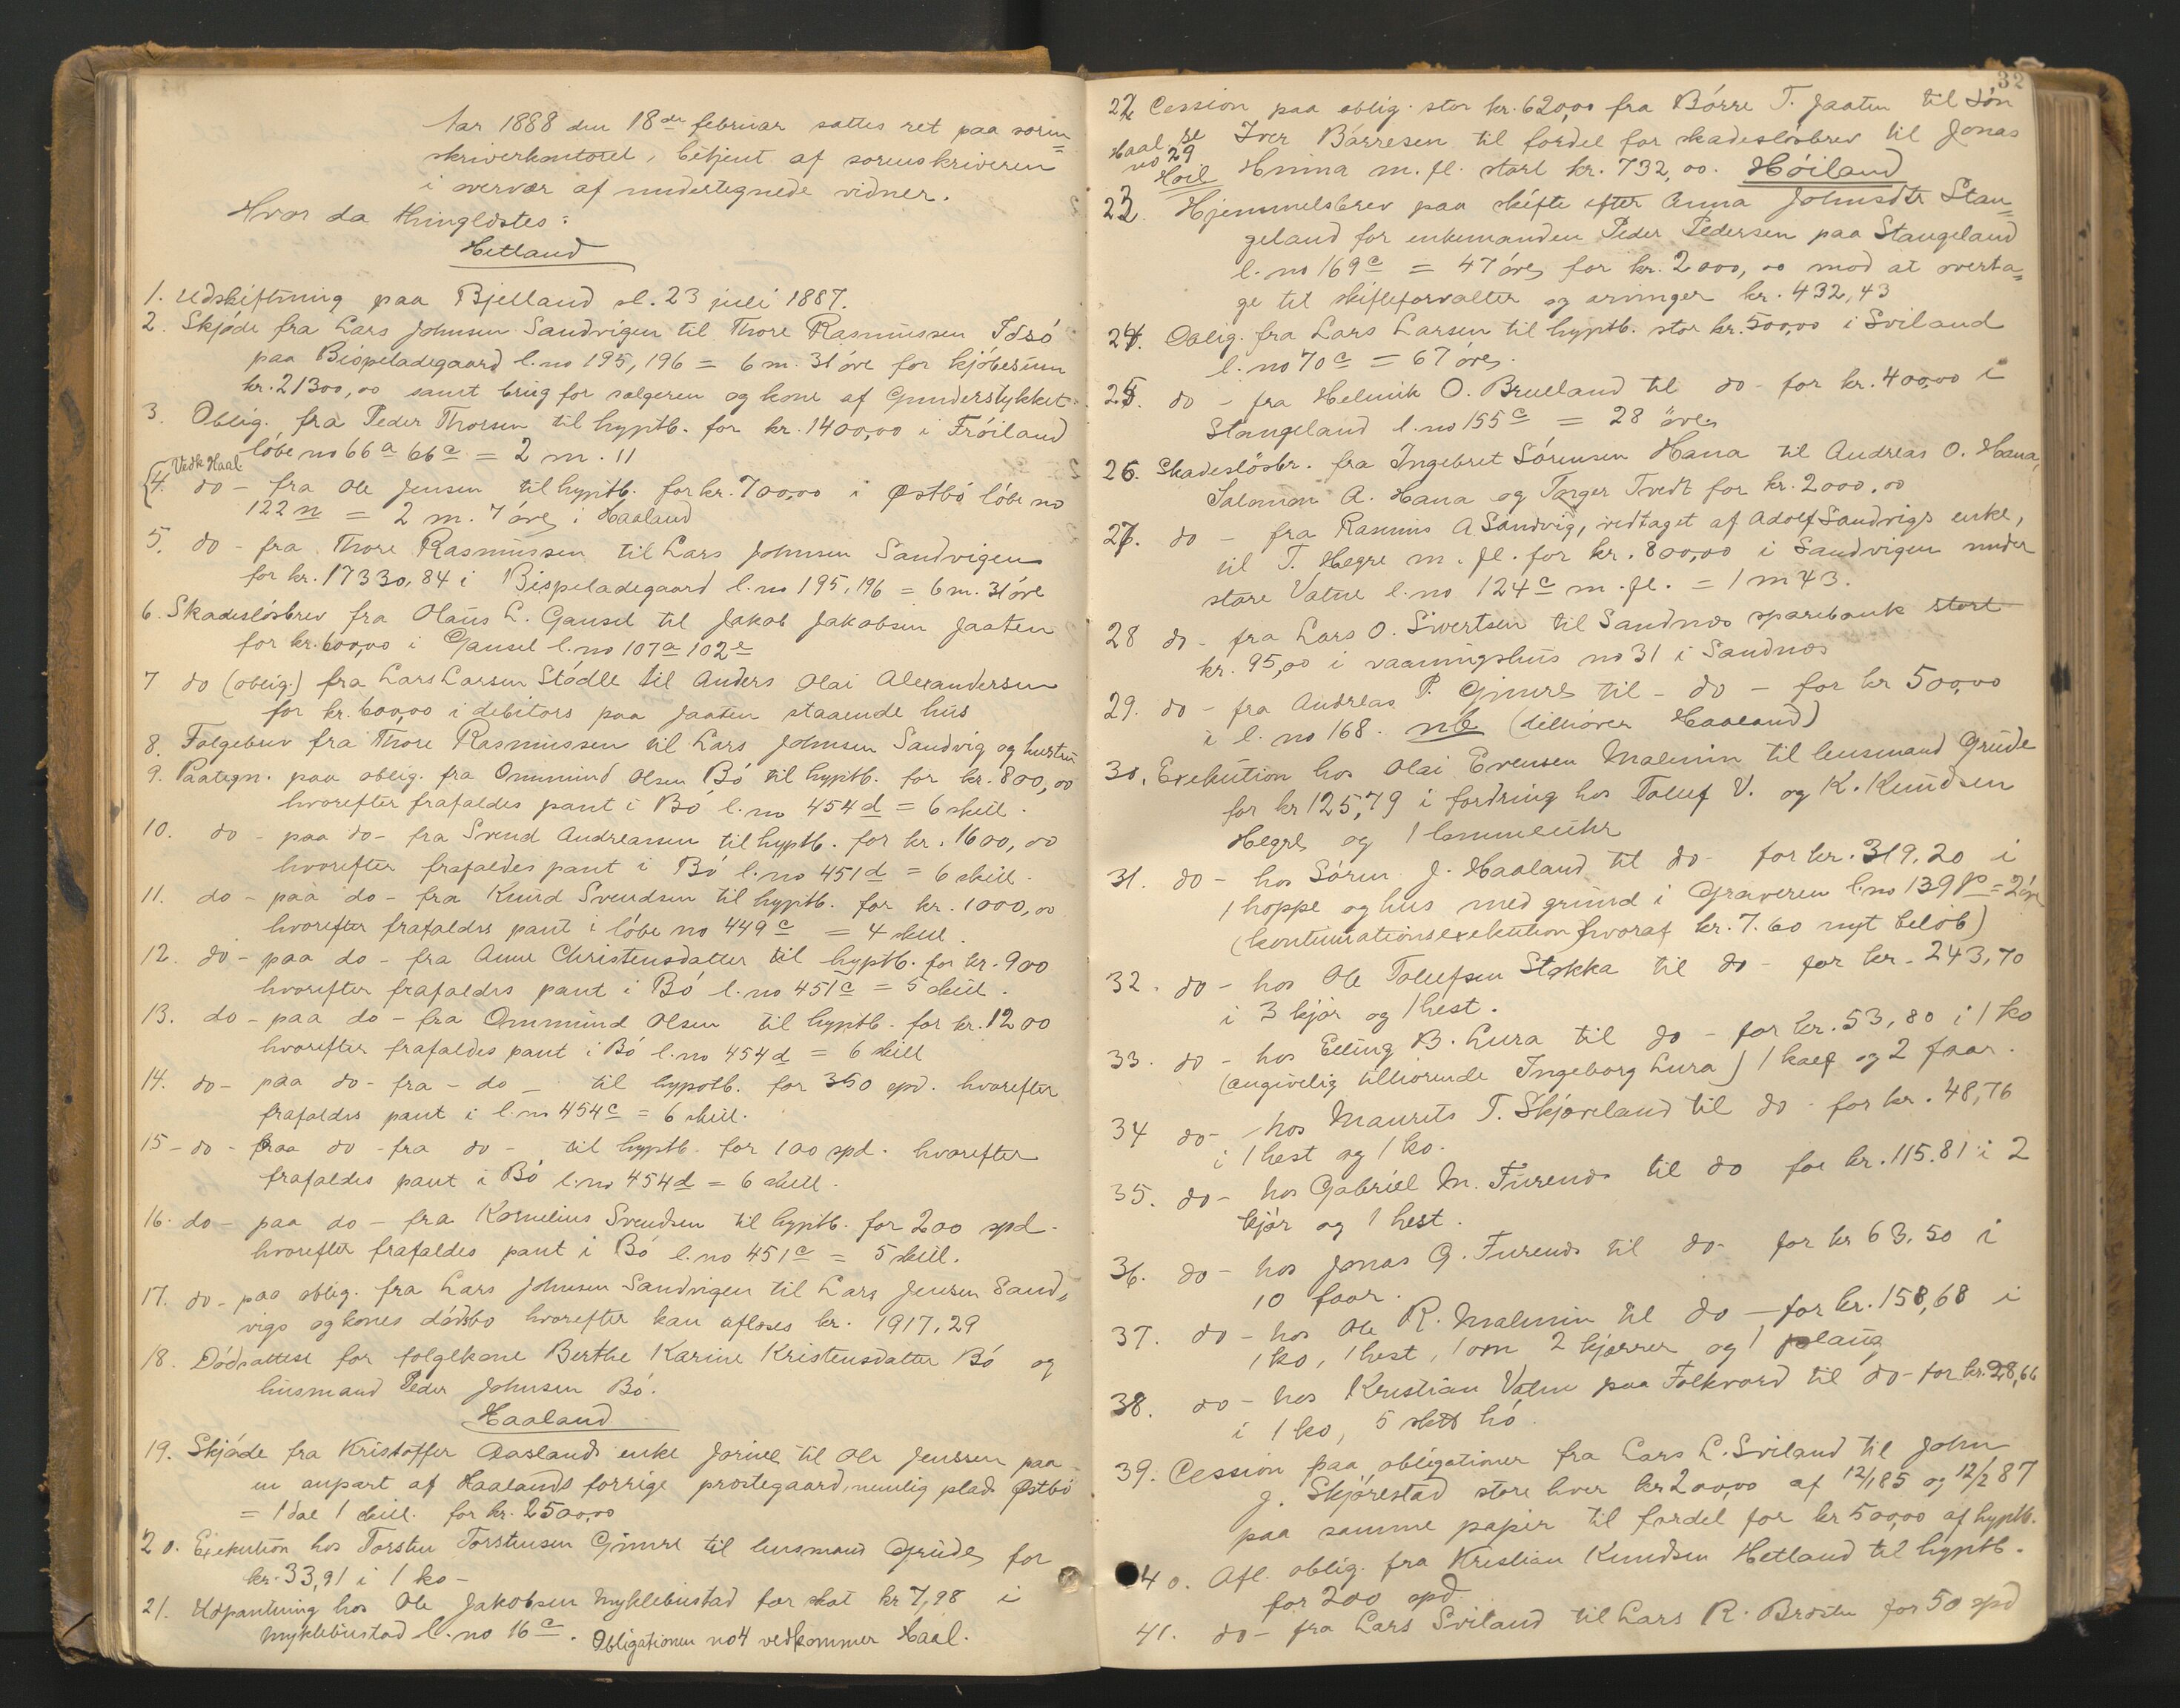 Aar 1888 den 18de februar sattes ret paa soren=
skriverkontoret, betjent af sorenskriveren
i overvær af undertegnede vidner.
Hvor da thinglæstes:
Hetland
1. Udskiftning paa Bjelland sl. 23 juli 1887.
2. Skjøde fra Lars Johnsen Sandvigen til Thore Rasmussen Idsø
paa Bispeladegaard l. no 195, 196 = 6 m. 31 øre for kjøbesum
kr. 21300,00 samt brug for sælgeren og kone af Gunderstykket.
3. Oblig. fra Peder Thorsen til hyptb. for kr. 1400,00 i Frøiland
løbe no 66a 66c = 2 m. 11
Vedk Haal.
4. do - fra Ole Jensen til hyptb. for kr. 700,00 i Østbø løbe no
122 n = 2 m. 7 øre i Haaland
5. do - fra Thore Rasmussen til Lars Johnsen Sandvigen
for kr. 17330,84 i Bispeladegaard l. no 195, 196 = 6 m. 31 øre
6. Skadesløsbrev fra Olaus L. Gausel til Jakob Jakobsen Jaaten
for kr. 600,00 i Gausel l. no 107a 102e
7 do (oblig.) fra Lars Larsen Stødle til Anders Olai Alexandersen
for kr. 600,00 i debitors paa Jaaten staaende hus
8. Følgebrev fra Thore Rasmussen til Lars Johnsen Sandvig og hustru
9. Paategn. paa oblig. fra Ommund Olsen Bø til hyptb. for kr. 800,00
hvorefter frafaldes pant i Bø l. no 454d = 6 skill.
10. do - paa do - fra Svend Andreassen til hyptb. for kr. 1600,00
hvorefter frafaldes pant i Bø l. no 451d = 6 skill.
11. do - paa do - fra Knud Svendsen til hyptb. for kr. 1000,00
hvorefter frafaldes pant i løbe no 449c = 4 skill.
12. do - paa do - fra Anne Christensdatter til hyptb. for kr. 900
hvorefter frafaldes pant i Bø l. no 451c = 5 skill.
13. do - paa do - fra Ommund Olsen til hyptb. for kr. 1200
hvorefter frafaldes pant i Bø l. no 454d = 6 skill
14. do - paa do - fra - do - til hypotb. for 350 spd. hvorefter
frafaldes pant i l. no 454c = 6 skill.
15 - do - paa do - fra do - til hyptb. for 100 spd. hvorefter
frafaldes pant i Bø l. no 454d = 6 skill.
16. do - paa do - fra Kornelius Svendsen til hyptb. for 200 spd.
hvorefter frafaldes pant i Bø l. no 451c = 5 skill.
17. do - paa oblig. fra Lars Johnsen Sandvigen til Lars Jensen Sand„
vigs og kones dødsbo hvorefter kan afløses kr. 1917,29
18. Dødsattest for følgekone Berthe Karine Kristensdatter Bø og
husmand Peder Johnsen Bø.
Haaland
19. Skjøde fra Kristoffer Aaslands enke Joriul til Ole Jenssen paa
en anpart af Haalands forrige prostegaard, nemlig plads Østbø
= 1 dal 1 skill. for kr. 2500,00
20. Exekution hos Torsten Torstensen Gimre til lensmand Grude for
kr. 33,91 i 1 ko -
21. Udpantning hos Ole Jakobsen Myklebustad for skat kr 7,98 i
Myklebustad l. no 16c. Obligationen no 4 vedkommer Haal.
32
22 Cession paa oblig. stor kr. 6200,00 fra Børre T. Jaaten til søn
Haal se no 29 Høil
Iver Børresen til fordel for skadesløsbrev til Jonas
Hinna m. fl. stort kr. 732,00. Høiland
23. Hjemmelsbrev paa skifte efter Anna Johnsdtr Stan=
geland for enkemanden Peder Pedersen paa Stangeland
l. no 169c = 47 øre, for kr. 2000,00 mod at overta=
ge til skifteforvalter og arvinger kr. 432,43
24. Oblig. fra Lars Larsen til hyptb. stor kr. 500,00 i Sviland
l. no 70c = 67 øre.
25. do - fra Helmik O. Brueland til do - for kr. 400,00 i
Stangeland l. no 155c = 28 øre
26. Skadesløsbr. fra Ingebret Sørensen Hana til Andreas O. Hana,
Salomon A. Hana og Tørger Tvedt for kr. 2000,00
27. do - fra Rasmus A Sandvig, vedtaget af Adolf Sandvigs enke,
til T. Hegre m. fl. for kr. 800,00 i Sandvigen under
store Vatne l. no 124c m. fl. = 1 m 43.
28 do - fra Lars O. Sivertsen til Sandnæs sparebank stort
kr. 95,00 i vaaningshus no 31 i Sandnæs
29. do - fra Andreas P. Gimre til - do - for kr 500,00
i l. no 168. nb (tilhører Haaland)
30. Exekution hos Olai Evensen Malmin til lensmand Grude
for kr 125,79 i fordring hos Tollef V. og K. Knudsen
Hegre og 1 lommeuhr
31. do - hos Søren J. Haaland til do - for kr. 319.20 i
1 hoppe og hus med grund i Graveren l. no 139p = 2 øre
(kontinuationsexekution hvoraf kr. 7.60 nyt beløb)
32. do - hos Ole Tollefsen Stokka til do - for kr. 243,70
i 3 kjør og 1 hest.
33. do - hos Elling B. Lura til do - for kr. 53,80 i 1 ko
(angivelig tilhørende Ingeborg Lura) 1 kalf og 2 faar.
34 do - hos Maurits T. Skjæveland til do - for kr. 48,76
i 1 hest og 1 ko.
35. do - hos Gabriel M. Furenes til do for kr. 115.81 i 2
kjør og 1 hest.
36. do - hos Jonas G. Furenes til do - for kr 63.50 i
10 faar.
37. do - hos Ole R. Malmin til do - for kr. 158,68 i
1 ko, 1 hest, 1 orn 2 kjærrer og 1 plaug
38. do - hos Kristian Vatne paa Folkvord til do - for kr. 28,66
i 1 ko, 5 sktt hø.
39. Cession paa obligationer fra Lars L. Sviland til John
J. Skjørestad store hver kr 200,00 af 12/1 85 og 12/2 87
paa samme papir til fordel for kr 500,00 af hyptb.
40. Afl. oblig. fra Kristian Knudsen Hetland til hyptb.
for 200 spd.
41. do - fra Lars Sviland til Lars R. Brosten for 50 spd